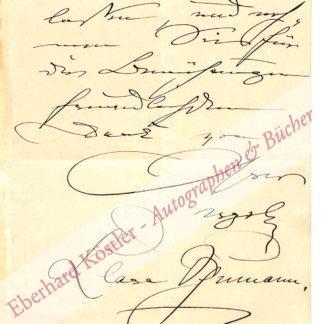 lassen und
nun Sie für
die Bemühungen
freundlichsten
Dank von
Ihrer
ergeb.
Clara Schumann.
Eberhard Köstler - Autographen & Bücher